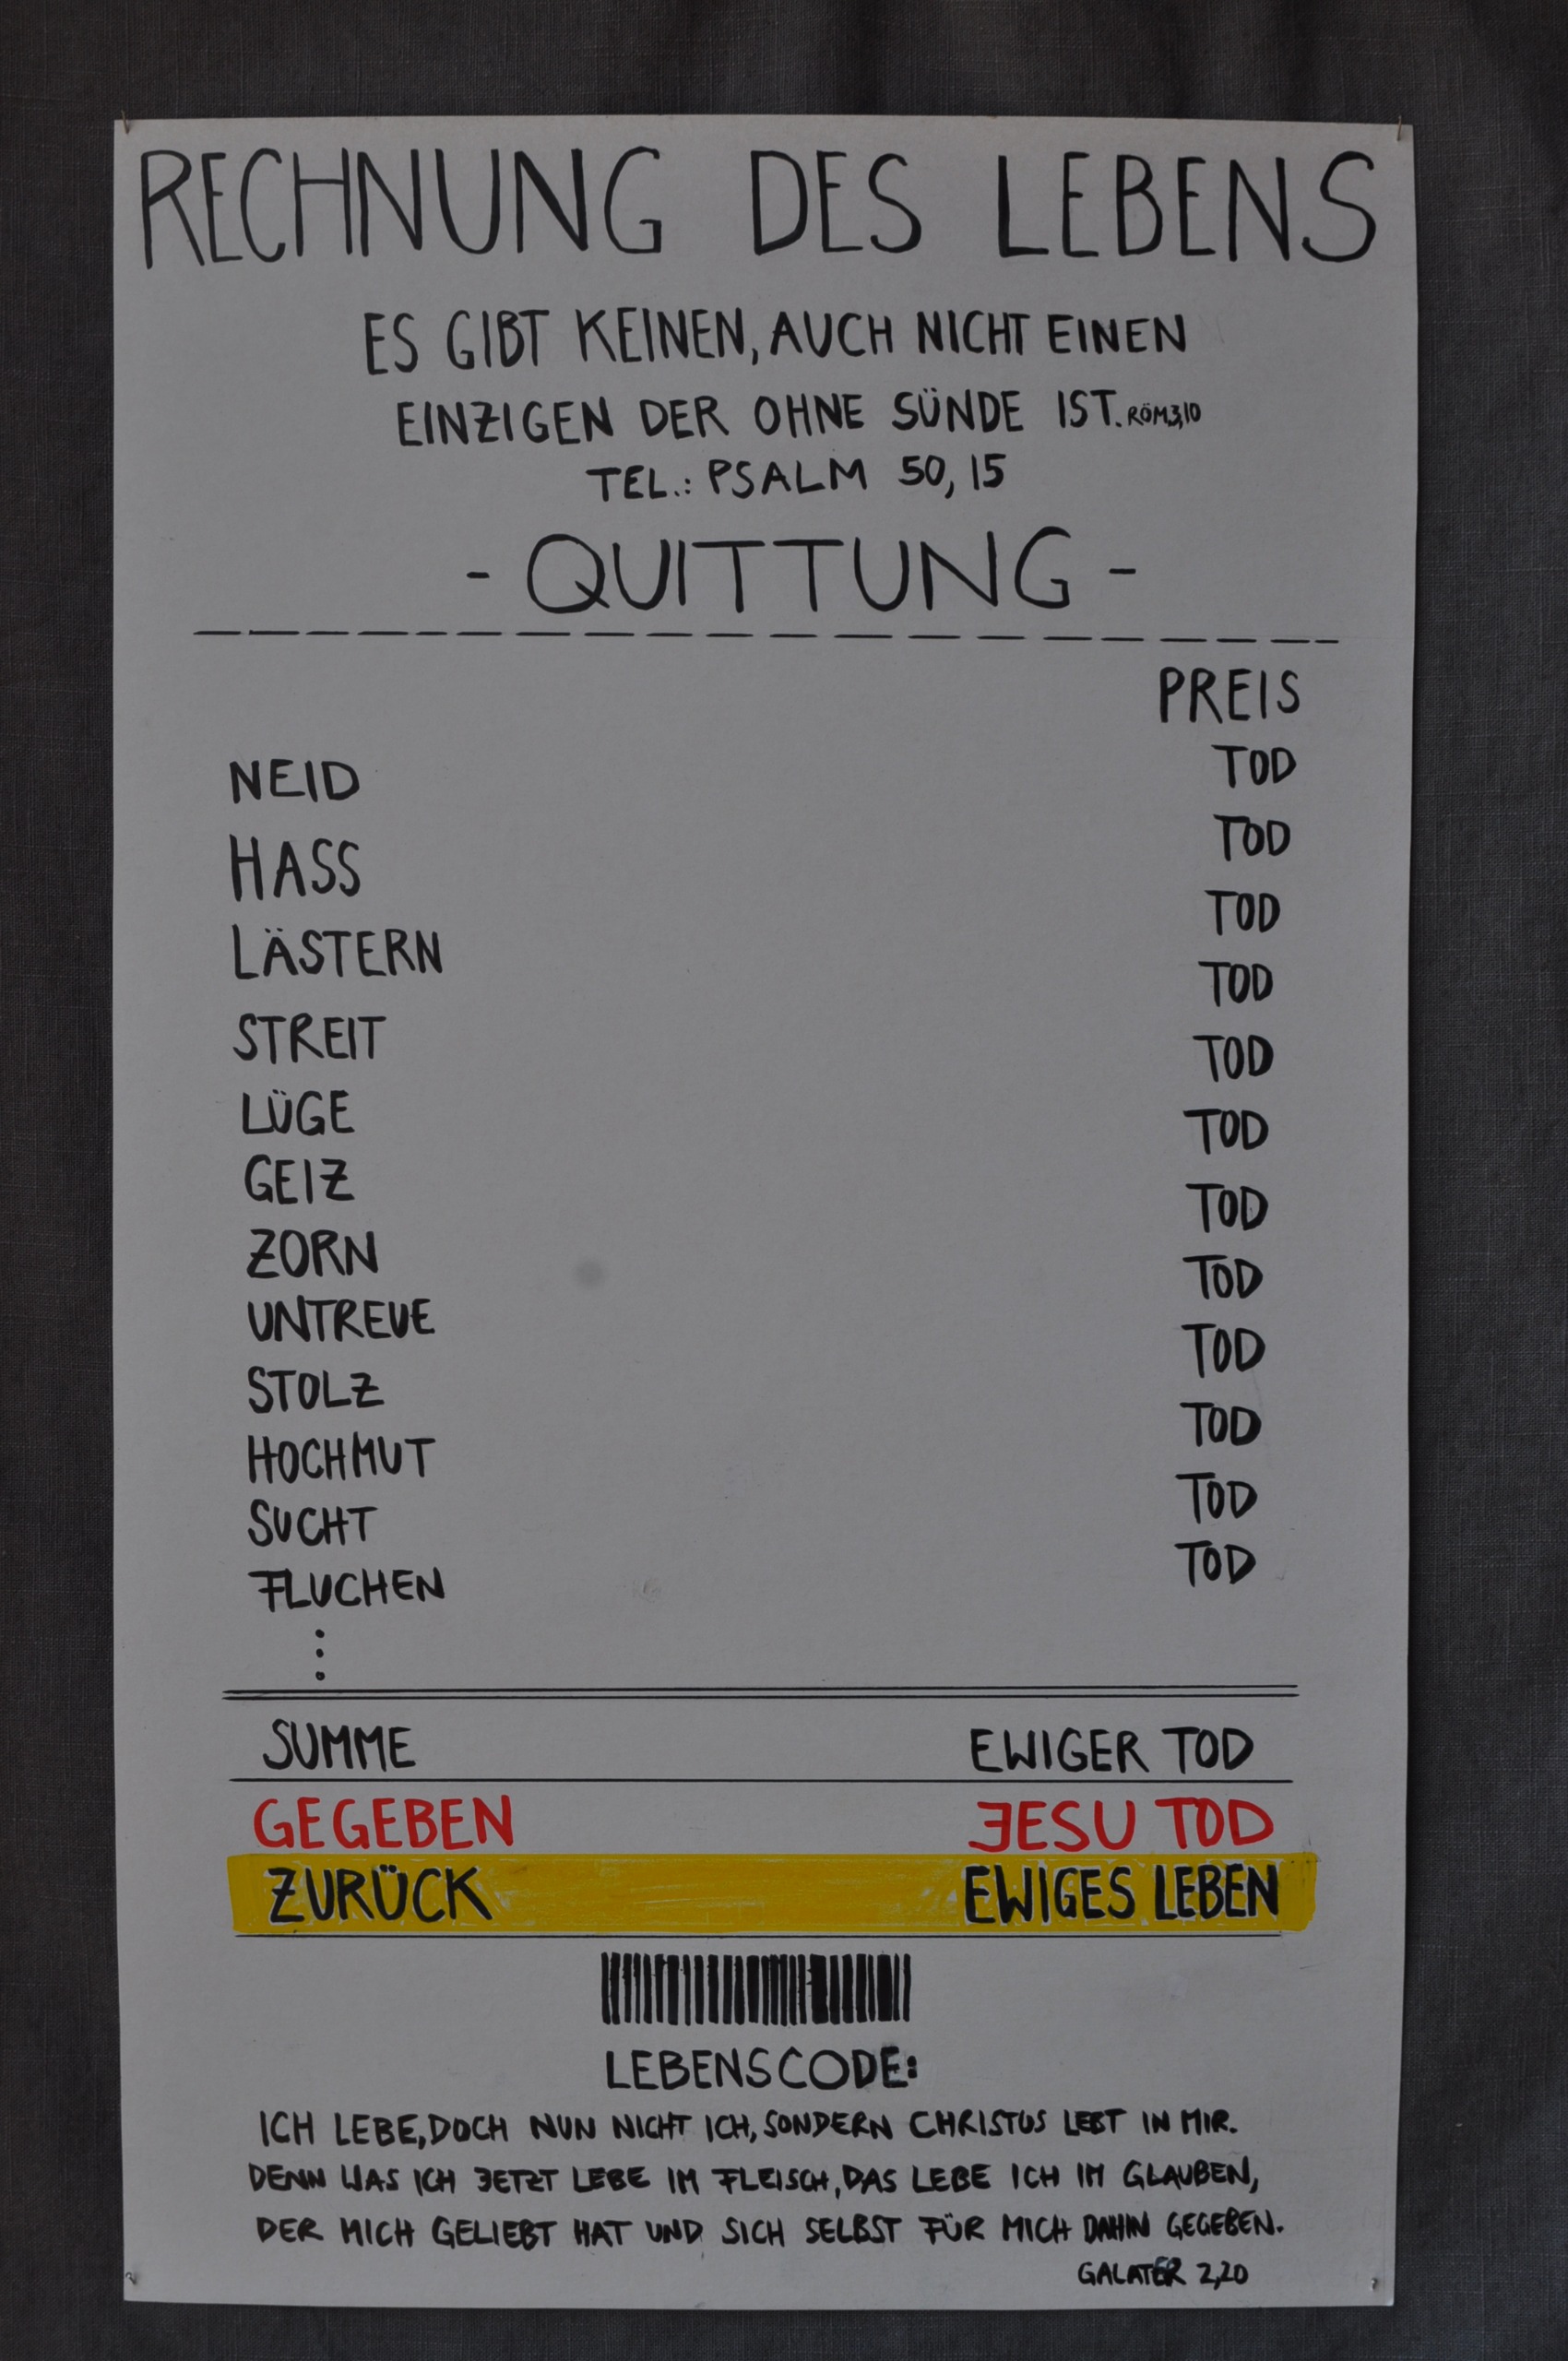 RECHNUNG DES LEBENS
ES GIBT KEINEN, AUCH NICHT EINEN
EINZIGEN DER OHNE SÜNDE IST. RÖM3,10
TEL.: PSALM 50,15
- QUITTUNG -
PREIS
NEID TOD
HASS TOD
LÄSTERN TOD
STREIT TOD
LÜGE TOD
GEIZ TOD
ZORN TOD
UNTREUE TOD
STOLZ TOD
HOCHMUT TOD
SUCHT TOD
FLUCHEN TOD
SUMME EWIGER TOD
GEGEBEN JESU TOD
ZURÜCK EWIGES LEBEN
LEBENSCODE:
ICH LEBE, DOCH NUN NICHT ICH, SONDERN CHRISTUS LEBT IN MIR.
DENN WAS ICH JETZT LEBE IM FLEISCH, DAS LEBE ICH IM GLAUBEN,
DER MICH GELIEBT HAT UND SICH SELBST FÜR MICH DAHIN GEGEBEN.
GALATER 2,20